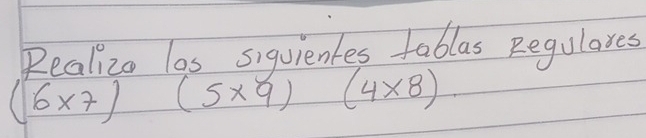 Realiza las siguientes tablas Regulares
(6x7) (5x9) (4x8).